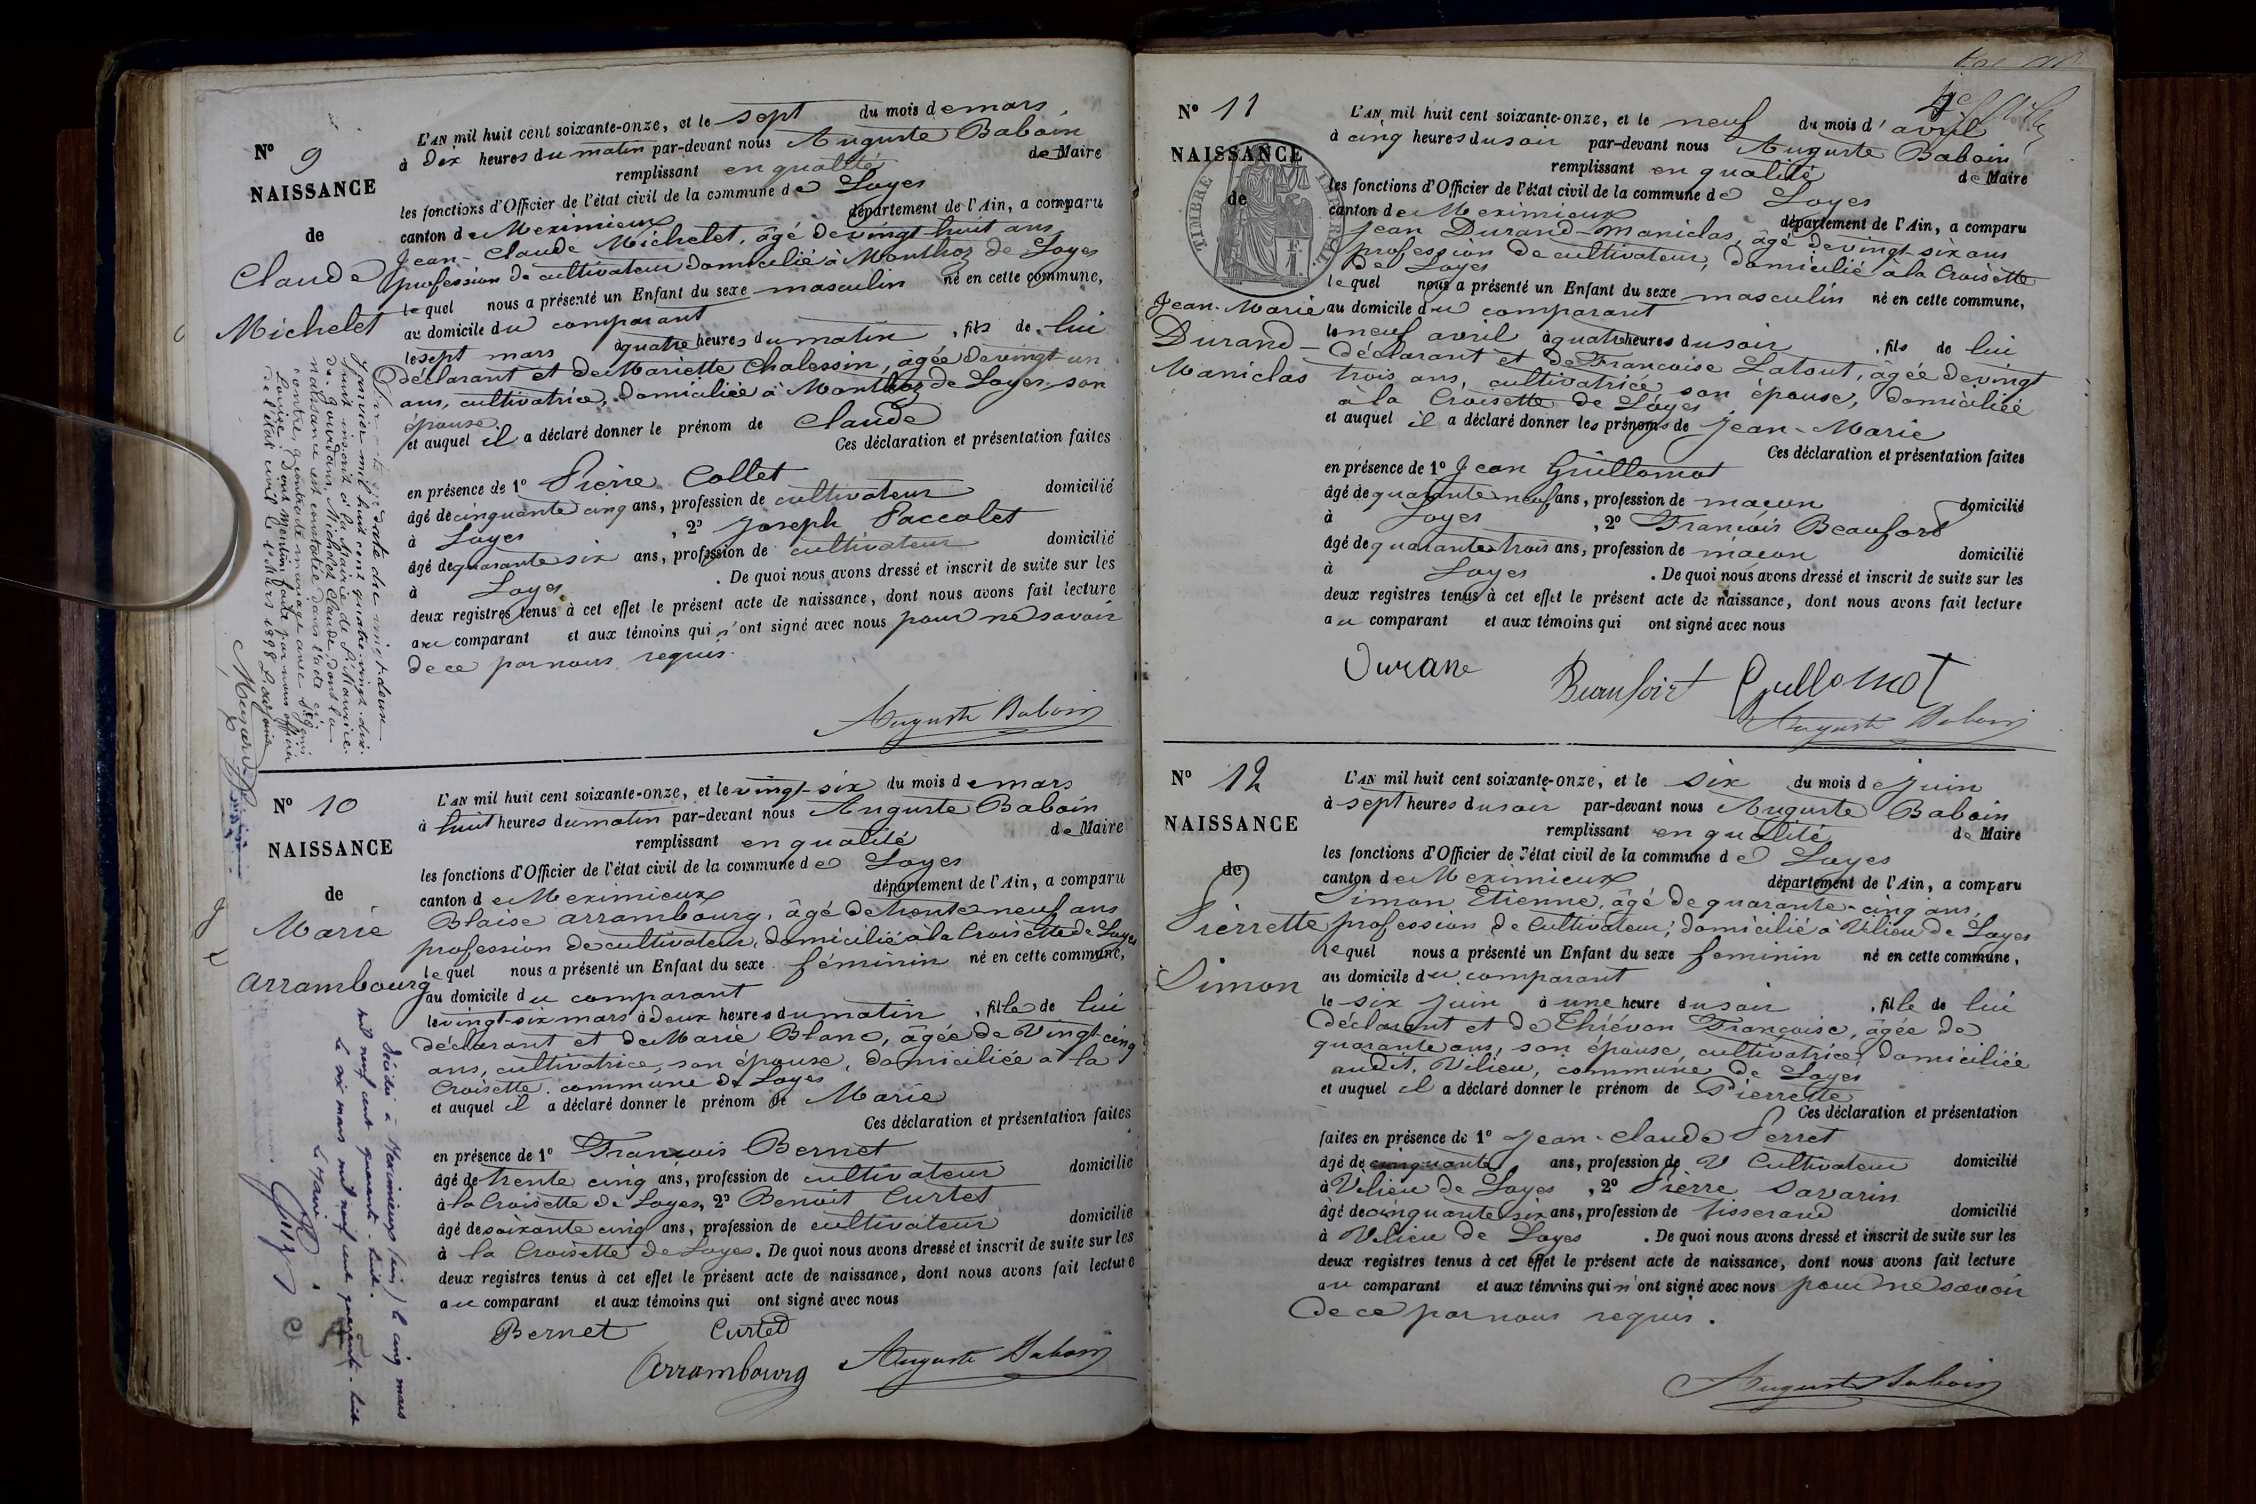 N° 9
NAISSANCE
de
Claude
Michelet
L'AN mil huit cent soixante-onze, et le sept du mois de mars
à dix heures du matin par-devant nous Auguste Baboin
remplissant en qualité de Maire
les fonctions d'Officier de l'état civil de la commune de Loyes
canton de Meximieux département de l'Ain, a comparu
Jean-Claude Michelet, âgé de vingt huit ans,
profession de cultivateur domicilié à Monthoz de Loyes
lequel nous a présenté un Enfant du sexe masculin né en cette commune,
au domicile du comparant
le sept mars à quatre heures du matin, fils de lui
déclarant et de Mariette Chalessin, agée de vingt-un
ans, cultivatrice, domiciliée à Monthoz de Loyes son
épouse.
et auquel il a déclaré donner le prénom de Claude
Ces déclaration et présentation faites
en présence de 1° Pierre Collet
âgé de cinquante cinq ans, profession de cultivateur domicilié
à Loyes, 2° Joseph Paccolet
âgé de quarante six ans, profession de cultivateur domicilié
à Loyes. De quoi nous avons dressé et inscrit de suite sur les
deux registres tenus à cet effet le présent acte de naissance, dont nous avons fait lecture
au comparant et aux témoins qui n'ont signé avec nous pour ne savoir
de ce par nous requis.
Auguste Baboin
date du vingt-deux
janvier mil huit cent quatre-vingt-dix-
huit inscrit à la Mairie de St Maurice-
de-Gourdans, Michelet Claude dont la
naissance est constatée dans l'acte ci-
contre, a contracté mariage avec
Louise. Dont Mention faite par nous officier
de l'état civil le 1er Mars 1898
N° 10
NAISSANCE
de
Marie
Arrambourg
L'AN mil huit cent soixante-onze, et le vingt-six du mois de mars
à huit heures du matin par-devant nous Auguste Baboin
remplissant en qualité de Maire
les fonctions d'Officier de l'état civil de la commune de Loyes
canton de Meximieux département de l'Ain, a comparu
Blaise Arrambourg, âgé de trente neuf ans
profession de cultivateur, domicilié à la Croisette de Loyes
lequel nous a présenté un Enfant du sexe féminin né en cette commune,
au domicile du comparant
le vingt-six mars à deux heures du matin, fille de lui
déclarant et de Marie Blanc, âgée de Vingt-cinq
ans, cultivatrice, son épouse, domiciliée à la
Croisette. commune de Loyes
et auquel il a déclaré donner le prénom de Marie
Ces déclaration et présentation faites
en présence de 1° François Bernet
âgé de trente cinq ans, profession de cultivateur domicilié
à la Croisette de Loyes, 2° Benoit Curtet
âgé de soixante cinq ans, profession de cultivateur domicilié
à la Croisette de Loyes. De quoi nous avons dressé et inscrit de suite sur les
deux registres tenus à cet effet le présent acte de naissance, dont nous avons fait lecture
au comparant et aux témoins qui ont signé avec nous
Bernet Curtet
Arrambourg Auguste Baboin
Décédée à Meximieux (Ain) le cinq mars
mil neuf cent quarante-huit.
Le six mars mil neuf cent quarante-huit
Le Maire.
N° 11
NAISSANCE
de
TIMBRE IMPÉRIAL
Jean-Marie
Durand-
Maniclas
L'AN mil huit cent soixante-onze, et le neuf du mois d'avril
à cinq heures du soir par-devant nous Auguste Baboin
remplissant en qualité de Maire
les fonctions d'Officier de l'état civil de la commune de Loyes
canton de Meximieux département de l'Ain, a comparu
Jean Durand-Maniclas, âgé de vingt-six ans
profession de cultivateur, domicilié à la Croisette
de Loyes
lequel nous a présenté un Enfant du sexe masculin né en cette commune,
au domicile du comparant
le neuf avril à quatre heures du soir, fils de lui
déclarant et de Françoise Latout, âgée de vingt
trois ans, cultivatrice son épouse, domiciliée
à la Croisette de Loyes
et auquel il a déclaré donner les prénoms de Jean-Marie
Ces déclaration et présentation faites
en présence de 1° Jean Guillomot
âgé de quarante neuf ans, profession de maçon domicilié
à Loyes, 2° François Beaufort
âgé de quarante trois ans, profession de maçon domicilié
à Loyes. De quoi nous avons dressé et inscrit de suite sur les
deux registres tenus à cet effet le présent acte de naissance, dont nous avons fait lecture
au comparant et aux témoins qui ont signé avec nous
Durane Beaufoirt Guillomot
Auguste Baboin
N° 12
NAISSANCE
de
Pierrette
Simon
L'AN mil huit cent soixante-onze, et le six du mois de juin
à sept heures du soir par-devant nous Auguste Baboin
remplissant en qualité de Maire
les fonctions d'Officier de l'état civil de la commune de Loyes
canton de Meximieux département de l'Ain, a comparu
Simon Etienne, âgé de quarante-cinq ans,
profession de Cultivateur; domicilié à Vilieu de Loyes
lequel nous a présenté un Enfant du sexe feminin né en cette commune,
au domicile du comparant
le six juin à une heure du soir, fille de lui
déclarant et de Thiévon Françoise, âgée de
quarante ans, son épouse, cultivatrice, domiciliée
audit, Vilieu, commune de Loyes
et auquel il a déclaré donner le prénom de Pierrette
Ces déclaration et présentation
faites en présence de 1° Jean-Claude Perret
âgé de cinquante ans, profession de Cultivateur domicilié
à Vilieu de Loyes, 2° Pierre Savarin
âgé de cinquante six ans, profession de tisserand domicilié
à Vilieu de Loyes. De quoi nous avons dressé et inscrit de suite sur les
deux registres tenus à cet effet le présent acte de naissance, dont nous avons fait lecture
au comparant et aux témoins qui n'ont signé avec nous pour ne savoir
de ce par nous requis.
Auguste Baboin